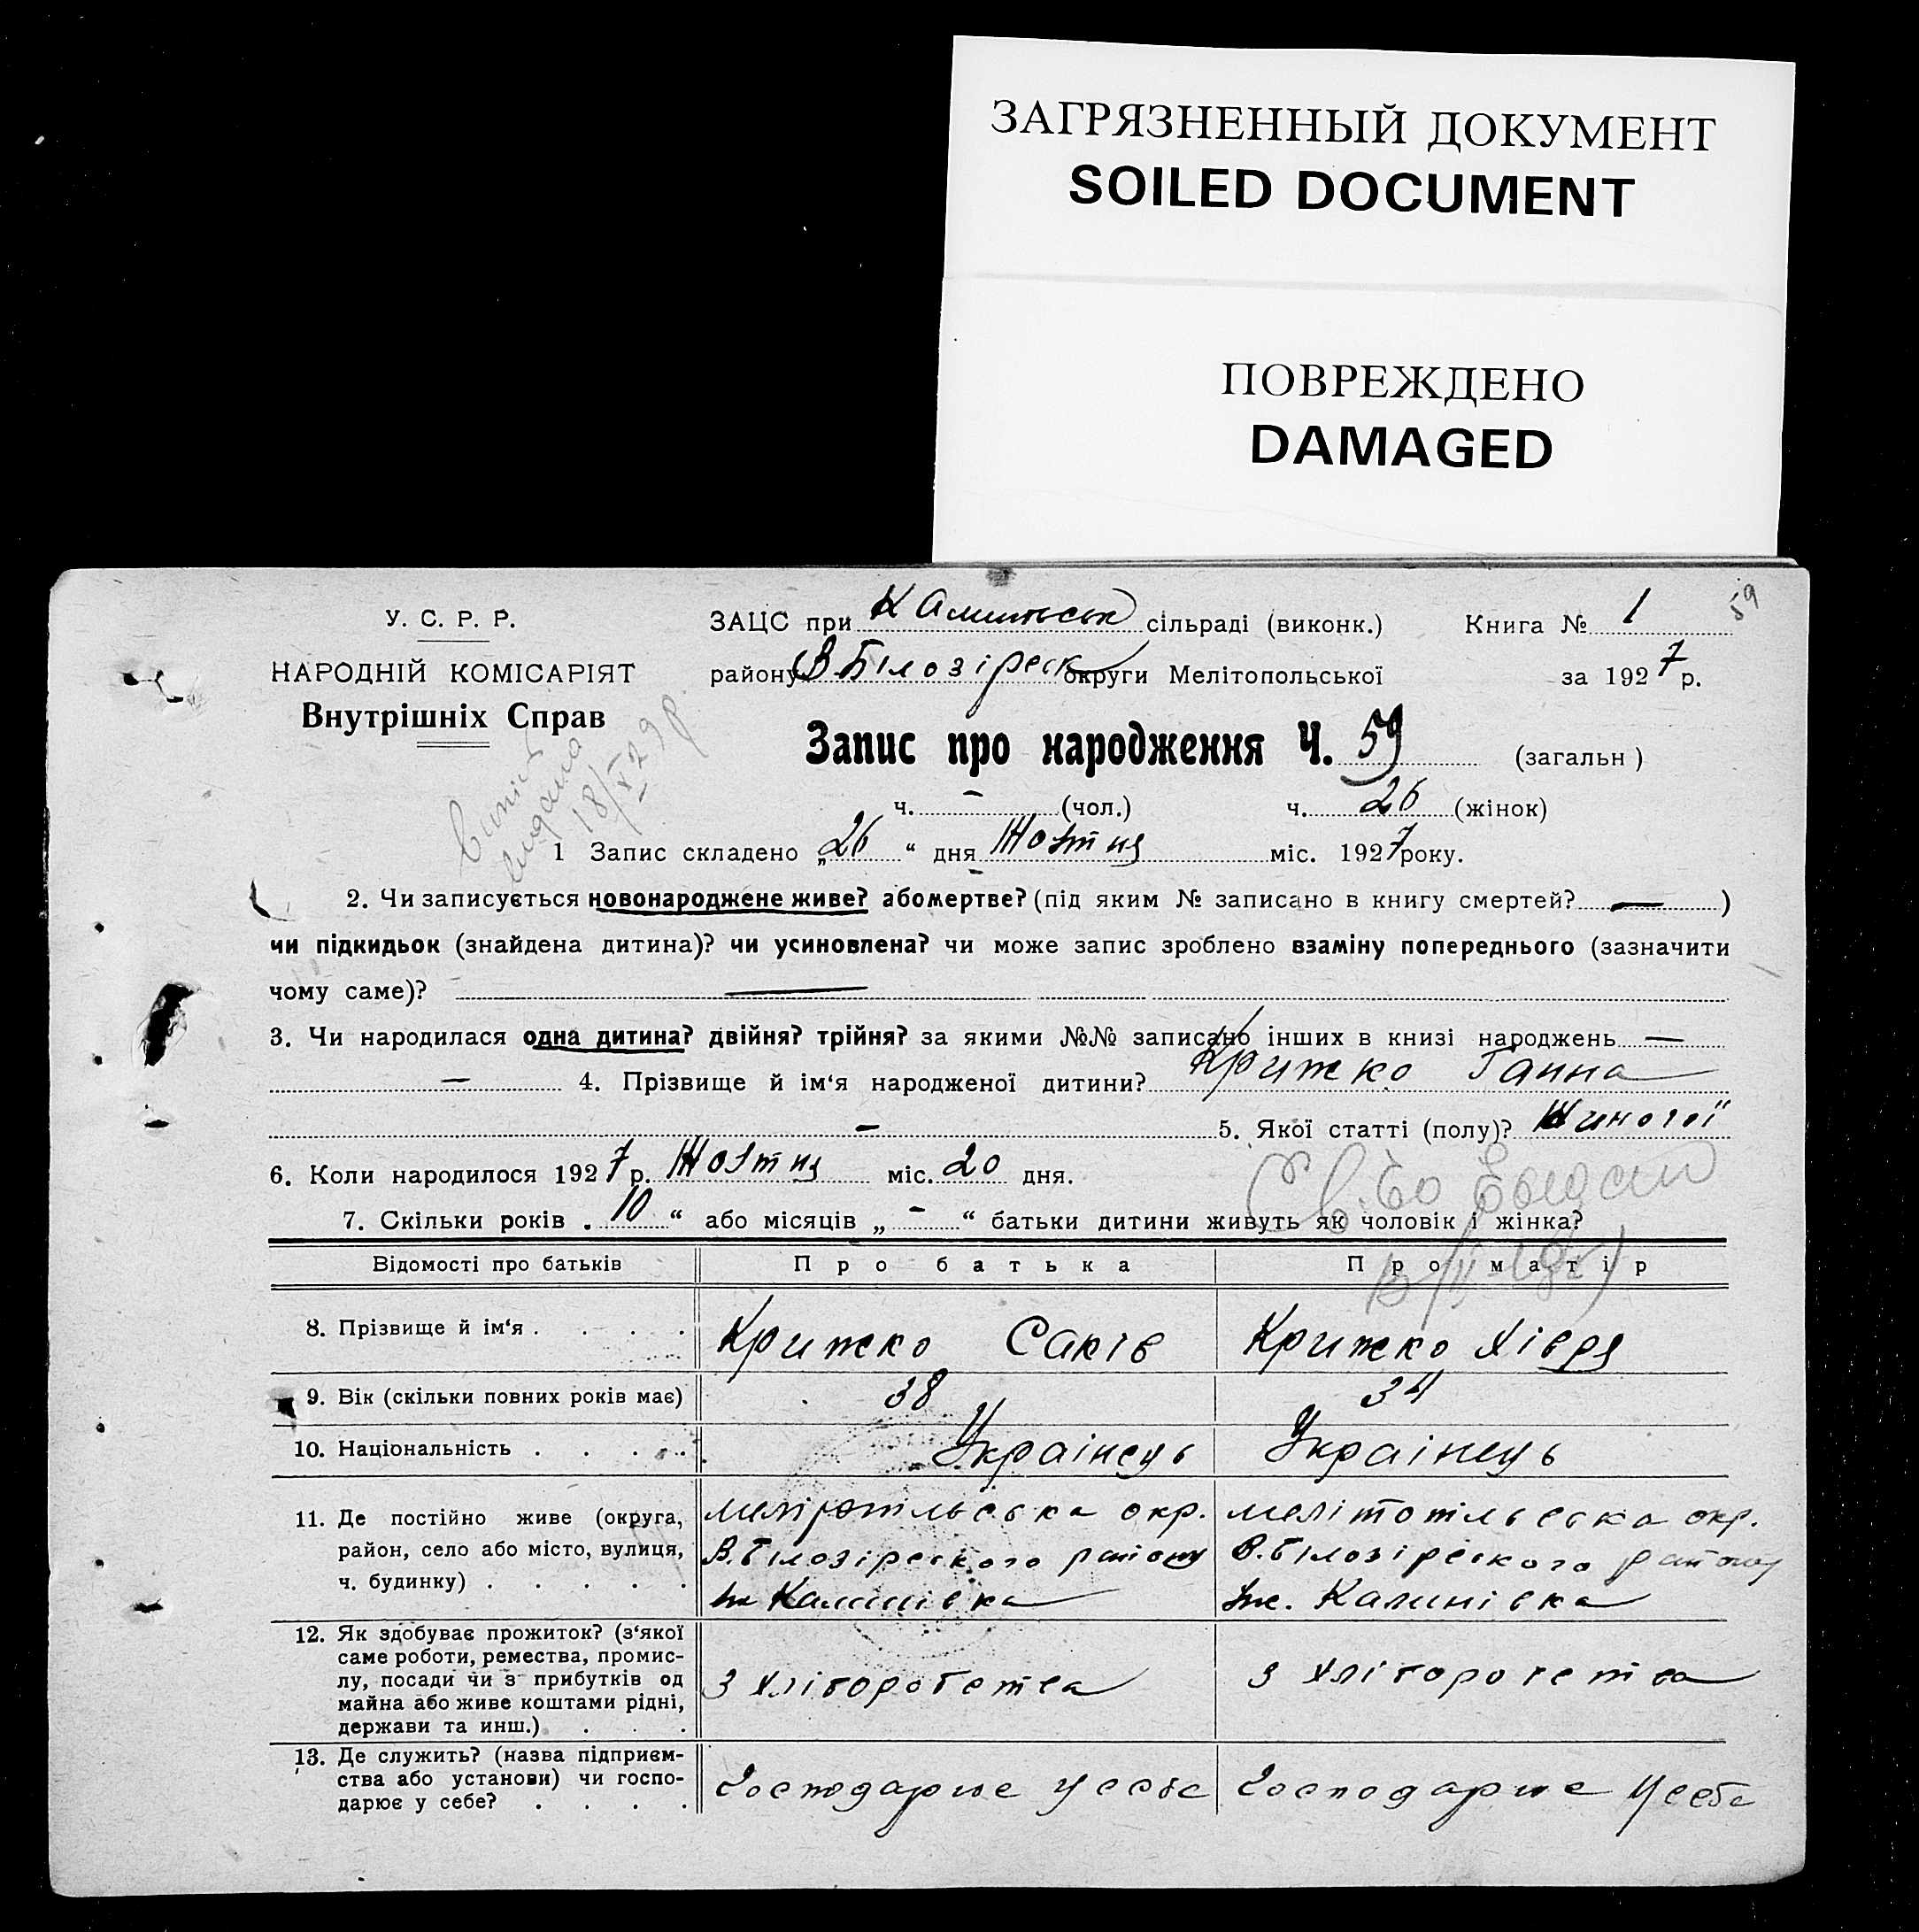 ЗАГРЯЗНЕННЫЙ ДОКУМЕНТ
SOILED DOCUMENT
ПОВРЕЖДЕНО
DAMAGED
59
У. С. Р. Р.
НАРОДНІЙ КОМІСАРІЯТ
Внутрішніх Справ
ЗАЦС при сільраді (виконк.) Книга № 1
району В Білозіреськ округи Мелітопольської за 1927 р.
Запис про народження Ч. 59 (загальн)
ч. - (чол.) ч. 26 (жінок)
18/XI 29 р
1 Запис складено „26“ дня Жовтня міс. 1927 року.
2. Чи записується новонароджене живе? або мертве? (під яким № записано в книгу смертей? — )
чи підкидьок (знайдена дитина)? чи усиновлена? чи може запис зроблено взаміну попереднього (зазначити
чому саме)? —
3. Чи народилася одна дитина? двійня? трійня? за якими №№ записано інших в книзі народжень —
— 4. Прізвище й ім‘я народженої дитини? Крижко Ганна
— 5. Якої статті (полу)? Жиночої
6. Коли народилося 1927 р. Жовтня міс. 20 дня.
7. Скільки років „10“ або місяців „-“ батьки дитини живуть як чоловік і жінка?
Відомості про батьків Про батька Про матір
8. Прізвище й ім‘я . . . . Крижко Саків Крижко Хівря
9. Вік (скільки повних років має) 38 34
10. Національність . . . . Украінець Украінець
11. Де постійно живе (округа, Мелітопільська окр. Мелітопільська окр.
район, село або місто, вулиця, В. Білозіреского району В. Білозіреского району
ч. будинку) . . . . . Калинівка Калинівка
12. Як здобуває прожиток? (з‘якої
саме роботи, ремества, промис-
лу, посади чи з прибутків од З хліборобства З хлібороботва
майна або живе коштами рідні,
держави та инш.) . . .
13. Де служить? (назва підприєм-
ства або установи) чи госпо- Господарше у себе Господарше у себе
дарює у себе? . . . .